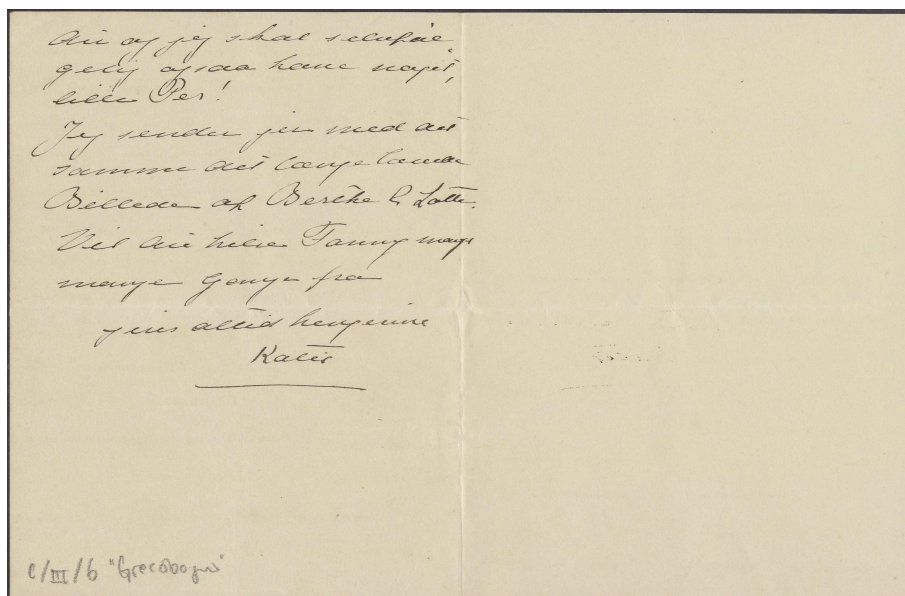 Du og jeg skal selvføl
gelig ogsaa have noget,
lille Per!
Jeg sender jer med det
samme det længe lovede
Billede af Berthe & Lotte.
Vil Du hilse Fanny mange
mange Gange fra
jeres altid hengivne
Katie
C/III/6 "Grecobogen"